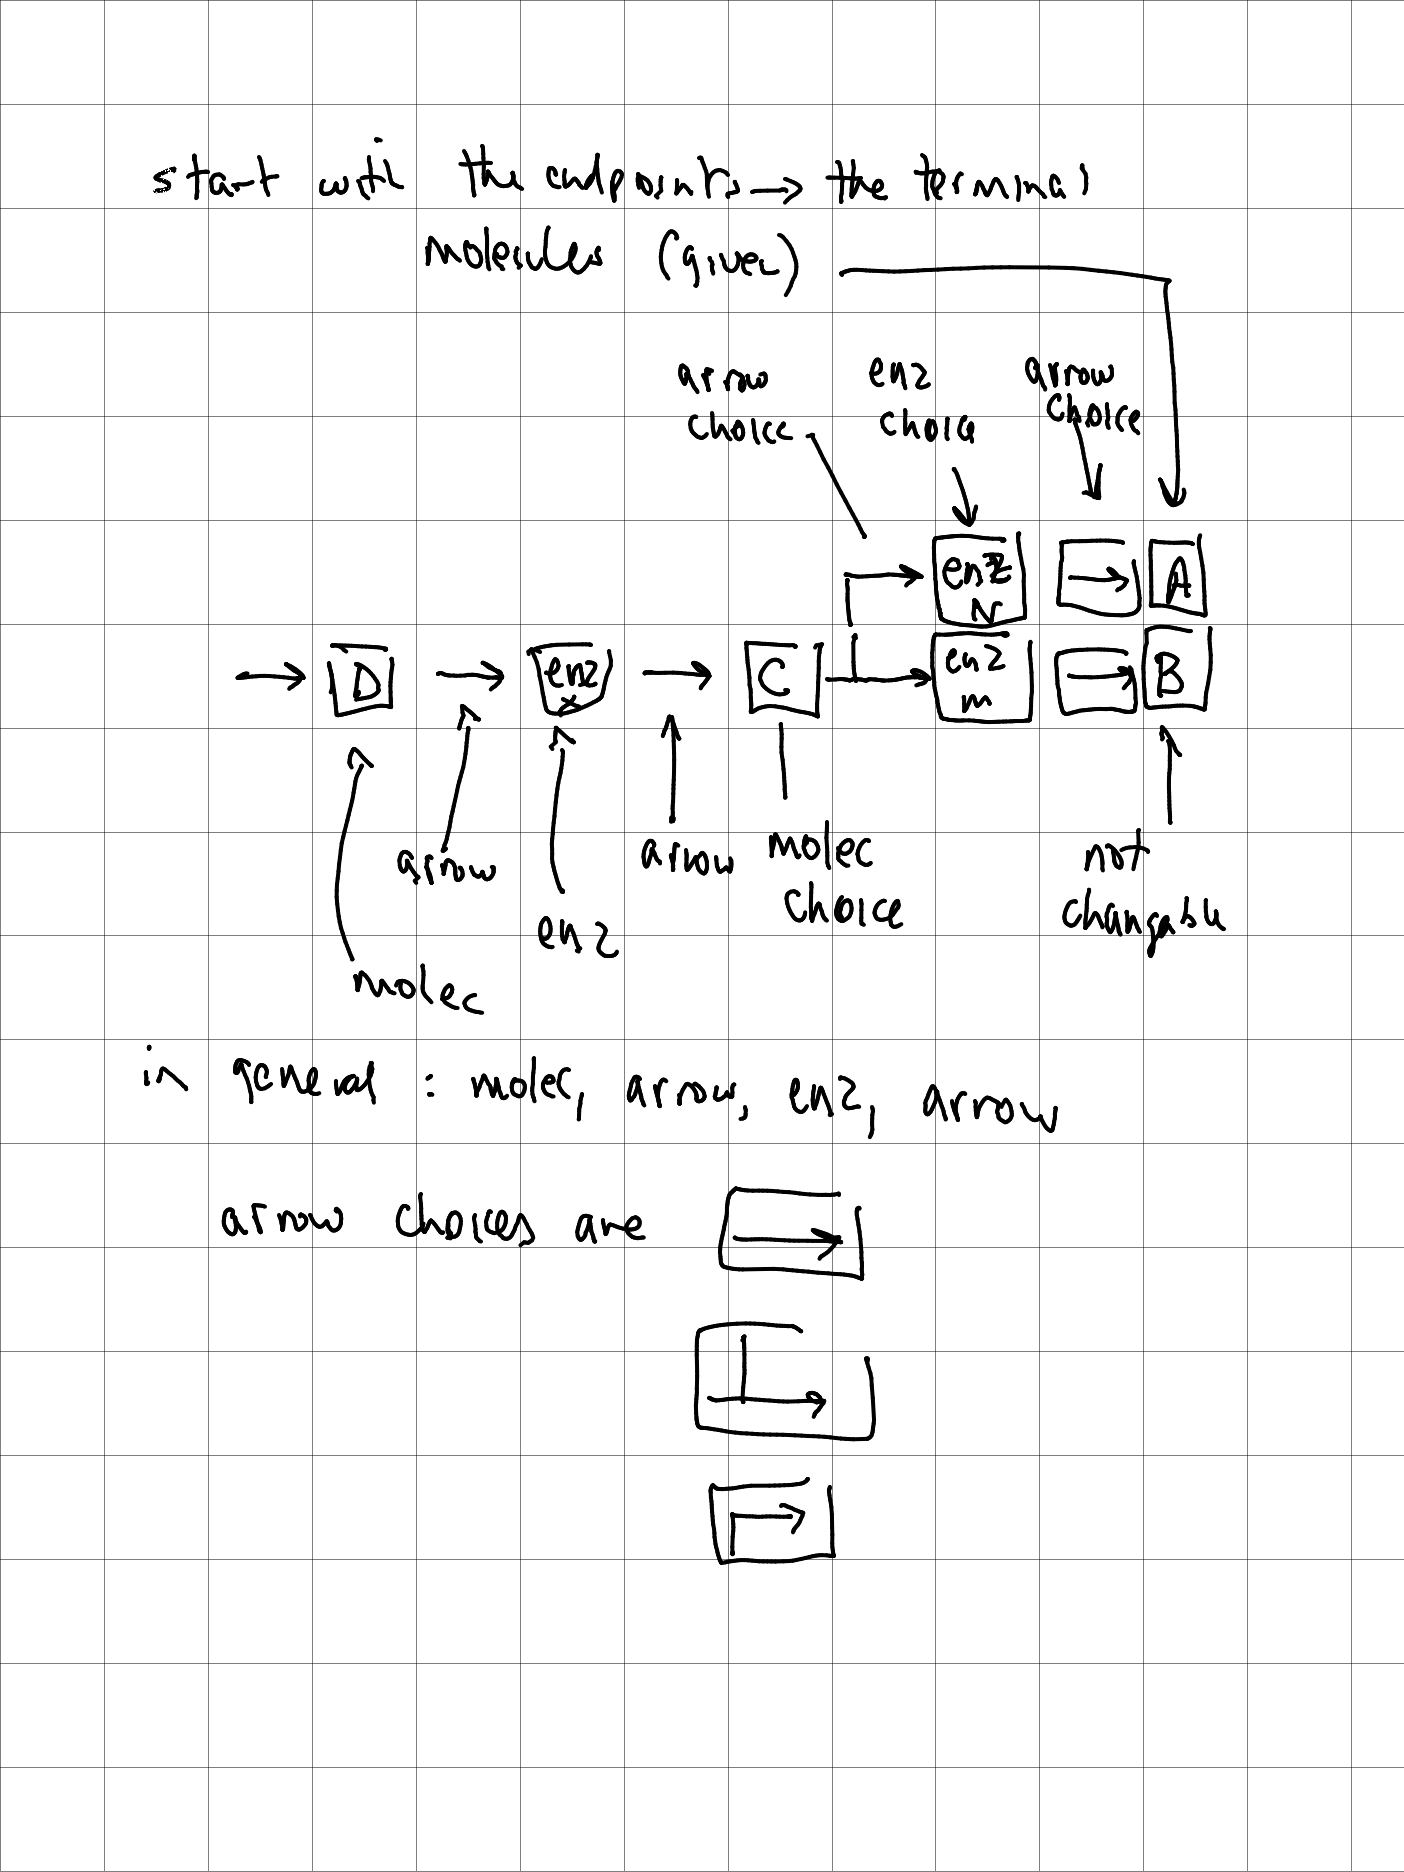 start with the endpoints → the terminal
molecules (given)
arrow choice
enz choice
arrow choice
enz N
A
D
enz x
C
enz m
B
arrow
arrow
molec choice
not changable
enz
molec
in general : molec, arrow, enz, arrow
arrow choices are